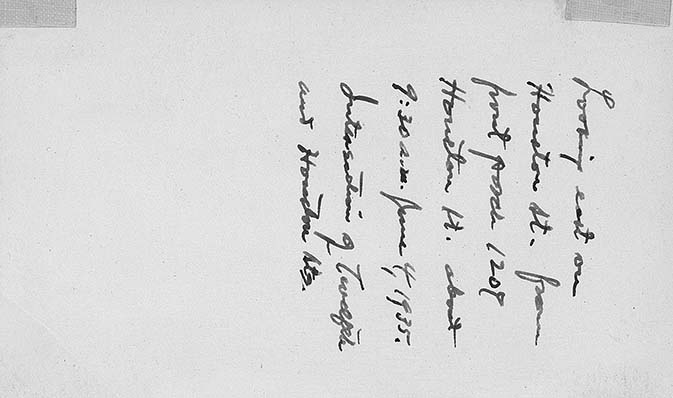 Looking east on
Houston St. from
front porch 1209
Houston St. about
9:30 a.m. June 4, 1935.
Intersection of Twelfth
and Houston Sts.